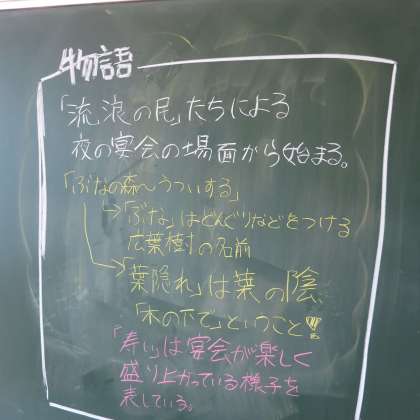 物語
「流浪の民」たちによる
夜の宴会の場面から始まる。
「ぶなの森～うついする」
→「ぶな」はどんぐりなどをつける
広葉樹の名前
→「葉隠れ」は葉の「陰、
「木の下で」ということ!!
「寿い」は宴会が楽しく
盛り上がっている様子を
表している。